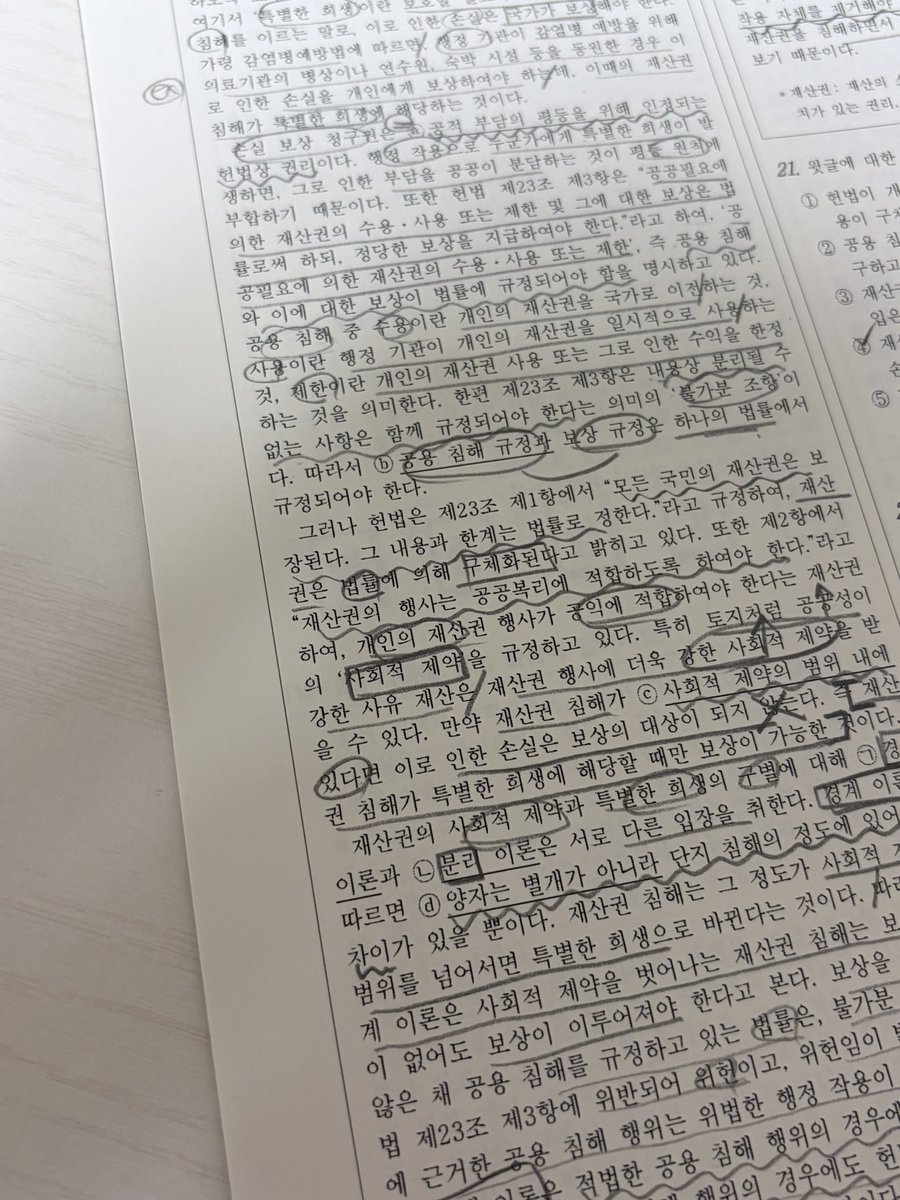 여기서 특별한 희생이란
침해를 이르는 말로, 이로 인한 손실은 국가가 보상해야 한다.
가령 감염병예방법에 따르면, 행정 기관이 감염병 예방을 위해
의료기관의 병상이나 연수원, 숙박 시설 등을 동원한 경우 이
로 인한 손실을 개인에게 보상하여야 하는데, 이때의 재산권
침해가 특별한 희생에 해당하는 것이다.
손실 보상 청구권은 ⓐ 공적 부담의 평등을 위해 인정되는
헌법상 권리이다. 행정 작용으로 누군가에게 특별한 희생이 발
생하면, 그로 인한 부담을 공공이 분담하는 것이 평등 원칙에
부합하기 때문이다. 또한 헌법 제23조 제3항은 “공공필요에
의한 재산권의 수용·사용 또는 제한 및 그에 대한 보상은 법
률로써 하되, 정당한 보상을 지급하여야 한다.”라고 하여, ‘공
공필요에 의한 재산권의 수용·사용 또는 제한’, 즉 공용 침해
와 이에 대한 보상이 법률에 규정되어야 함을 명시하고 있다.
공용 침해 중 수용이란 개인의 재산권을 국가로 이전하는 것,
사용이란 행정 기관이 개인의 재산권을 일시적으로 사용하는
것, 제한이란 개인의 재산권 사용 또는 그로 인한 수익을 한정
하는 것을 의미한다. 한편 제23조 제3항은 내용상 분리될 수
없는 사항은 함께 규정되어야 한다는 의미의 ‘불가분 조항’이
다. 따라서 ⓑ 공용 침해 규정과 보상 규정은 하나의 법률에서
규정되어야 한다.
그러나 헌법은 제23조 제1항에서 “모든 국민의 재산권은 보
장된다. 그 내용과 한계는 법률로 정한다.”라고 규정하여, 재산
권은 법률에 의해 구체화된다고 밝히고 있다. 또한 제2항에서
“재산권의 행사는 공공복리에 적합하도록 하여야 한다.”라고
하여, 개인의 재산권 행사가 공익에 적합하여야 한다는 재산권
의 ‘사회적 제약’을 규정하고 있다. 특히 토지처럼 공공성이
강한 사유 재산은 재산권 행사에 더욱 강한 사회적 제약을 받
을 수 있다. 만약 재산권 침해가 ⓒ 사회적 제약의 범위 내에
있다면 이로 인한 손실은 보상의 대상이 되지 않는다. 즉 재산
권 침해가 특별한 희생에 해당할 때만 보상이 가능한 것이다.
재산권의 사회적 제약과 특별한 희생의 구별에 대해 ㉠ 경
이론과 ㉡ 분리 이론은 서로 다른 입장을 취한다. 경계 이론
따르면 ⓓ 양자는 별개가 아니라 단지 침해의 정도에 있어
차이가 있을 뿐이다. 재산권 침해는 그 정도가 사회적
범위를 넘어서면 특별한 희생으로 바뀐다는 것이다. 따라
계 이론은 사회적 제약을 벗어나는 재산권 침해는 보
이 없어도 보상이 이루어져야 한다고 본다. 보상을
않은 채 공용 침해를 규정하고 있는 법률은, 불가분
법 제23조 제3항에 위반되어 위헌이고, 위헌임이
에 근거한 공용 침해 행위는 위법한 행정 작용이
이론은 적법한 공용 침해 행위의 경우에
행위의 경우에도 헌
작용 자체를 제거해야
재산권을 침해하면서
보기 때문이다.
* 재산권 : 재산의
치가 있는 권리.
21. 윗글에 대한
① 헌법이 개
용이 구
② 공용 침
구하고
③ 재산
입은
④ 재
손
⑤